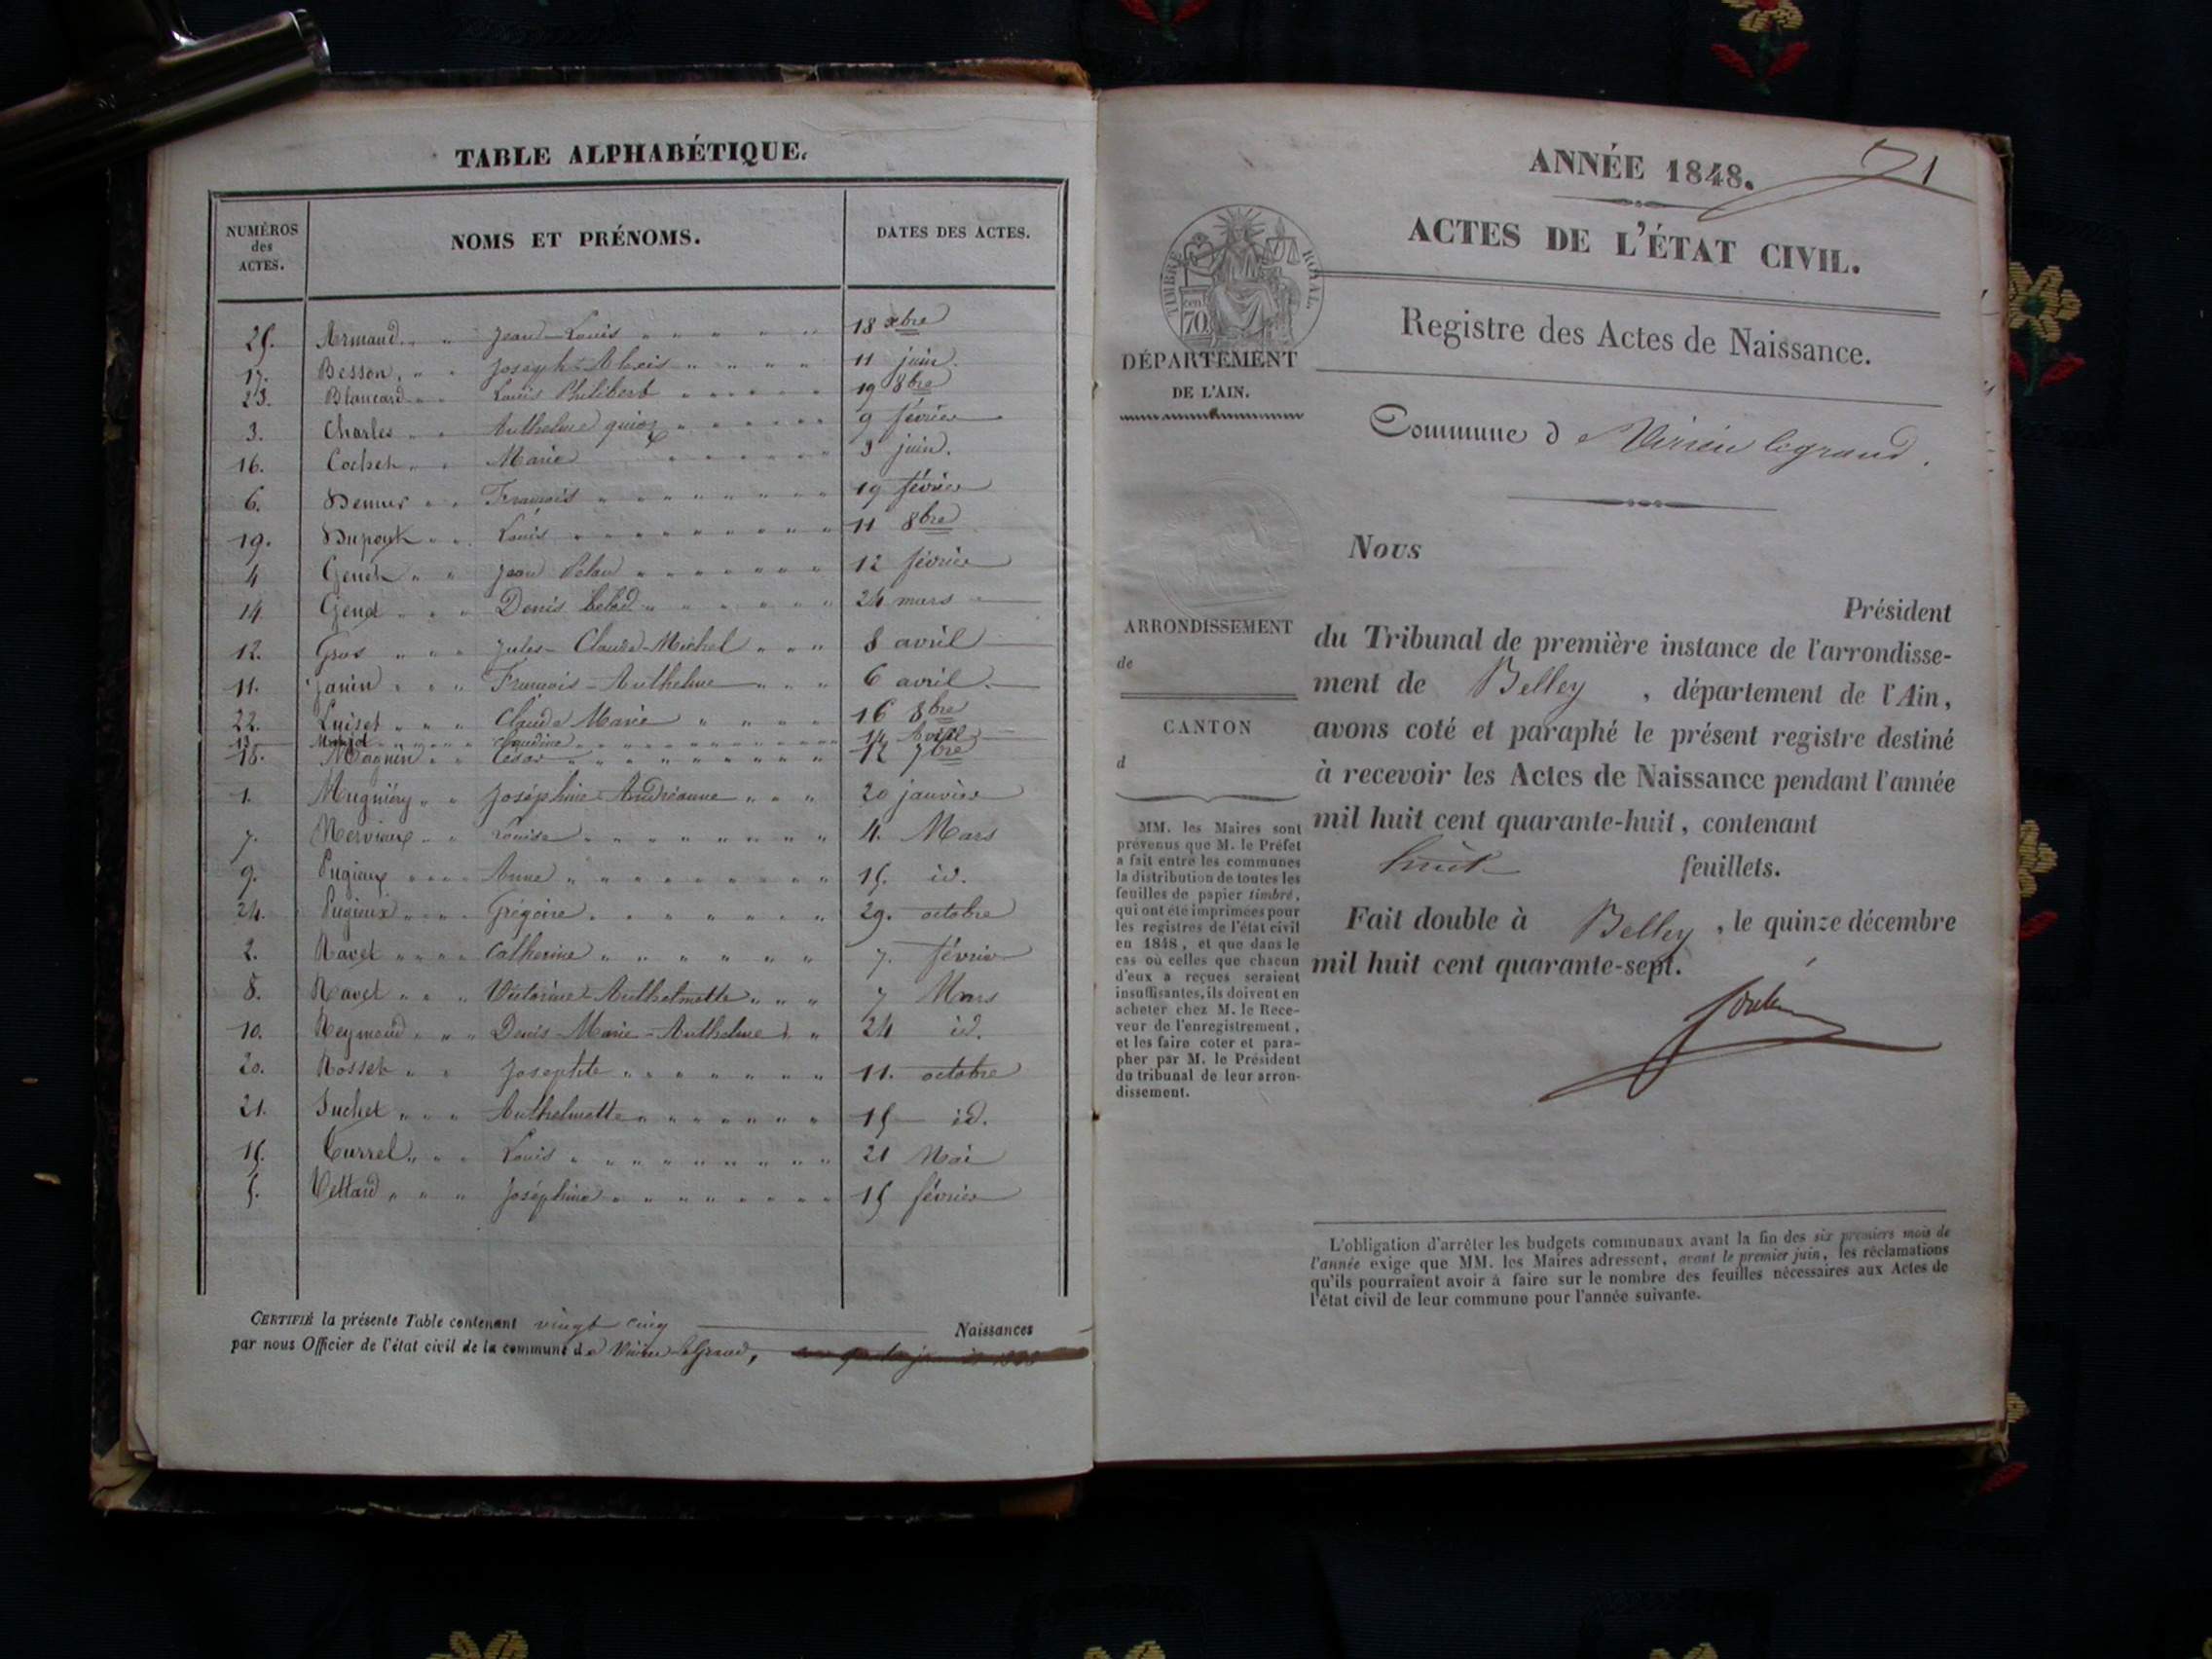 TABLE ALPHABÉTIQUE.
NUMÉROS des ACTES.
NOMS ET PRÉNOMS.
DATES DES ACTES.
25. Armand Jean-Louis 18 xbre
17. Besson Joseph-Alexis 11 juin
23. Blancard Louis Philibert 19 8bre
3. Charles Anthelme 9 février
16. Cochet Marie 3 juin.
6. François 19 février
19. Dupont Louis 11 8bre
4 Genet Jean 12 février
14 Genet Denis 24 mars
12. Gros Jules-Claude-Michel 8 avril
11. Janin François-Anthelme 6 avril
22. Luiset Claude Marie 16 8bre
13. Claudine 14 Avril
18. Magnin César 12 7bre
1. Mugniéry Joséphine-Andréanne 20 janvier
7. Nerviaux Louise 4. Mars
9. Pugieux Anne 15. id.
24. Pugieux Grégoire 29. octobre
2. Ravet Catherine 7. février
8. Ravet Victorine-Anthelmette 7 Mars
10. Reymond Denis-Marie-Anthelme 24 id.
20. Rosset Josephte 11. octobre
21. Suchet Anthelmette 15 id.
15. Currel Louis 21 Mai
5. Vettard Joséphine 15 février
CERTIFIÉ la présente Table contenant vingt cinq Naissances
par nous Officier de l'état civil de la commune de Virieu-le-Grand,
71
ANNÉE 1848.
ACTES DE L'ÉTAT CIVIL.
TIMBRE ROYAL
70 cen.
Registre des Actes de Naissance.
DÉPARTEMENT
DE L'AIN.
Commune d e Virieu legrand.
Nous
Président
ARRONDISSEMENT
de
du Tribunal de première instance de l'arrondisse-
ment de Belley , département de l'Ain,
CANTON
d
avons coté et paraphé le présent registre destiné
à recevoir les Actes de Naissance pendant l'année
mil huit cent quarante-huit, contenant
huit feuillets.
Fait double à Belley , le quinze décembre
mil huit cent quarante-sept.
MM. les Maires sont
prévenus que M. le Préfet
a fait entre les communes
la distribution de toutes les
feuilles de papier timbré,
qui ont été imprimées pour
les registres de l'état civil
en 1848, et que dans le
cas où celles que chacun
d'eux a reçues seraient
insuffisantes, ils doivent en
acheter chez M. le Rece-
veur de l'enregistrement,
et les faire coter et para-
pher par M. le Président
du tribunal de leur arron-
dissement.
L'obligation d'arrêter les budgets communaux avant la fin des six premiers mois de
l'année exige que MM. les Maires adressent, avant le premier juin, les réclamations
qu'ils pourraient avoir à faire sur le nombre des feuilles nécessaires aux Actes de
l'état civil de leur commune pour l'année suivante.